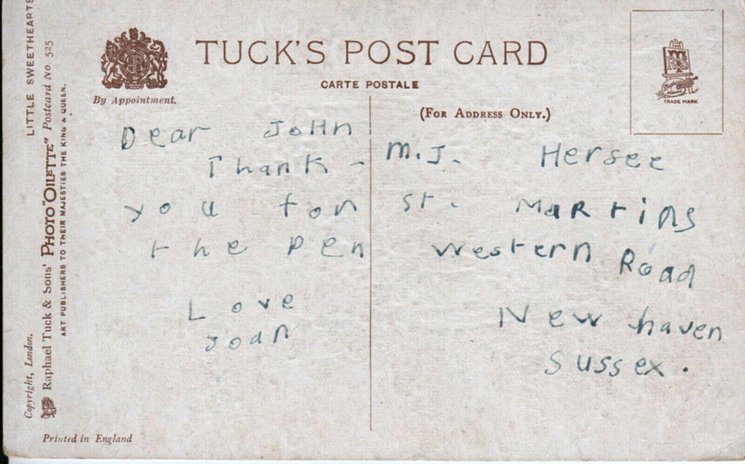 TUCK'S POST CARD
CARTE POSTALE
By Appointment.
(FOR ADDRESS ONLY.)
TRADE MARK
LITTLE SWEETHEARTS
Raphael Tuck & Sons' PHOTO "OILETTE" Postcard No 525
ART PUBLISHERS TO THEIR MAJESTIES THE KING & QUEEN.
Copyright, London.
Dear JoHN
Thank-
you for
the pen
Love
Joan
M.J. Hersee
St. Martins
Western Road
New haven
Sussex.
Printed in England